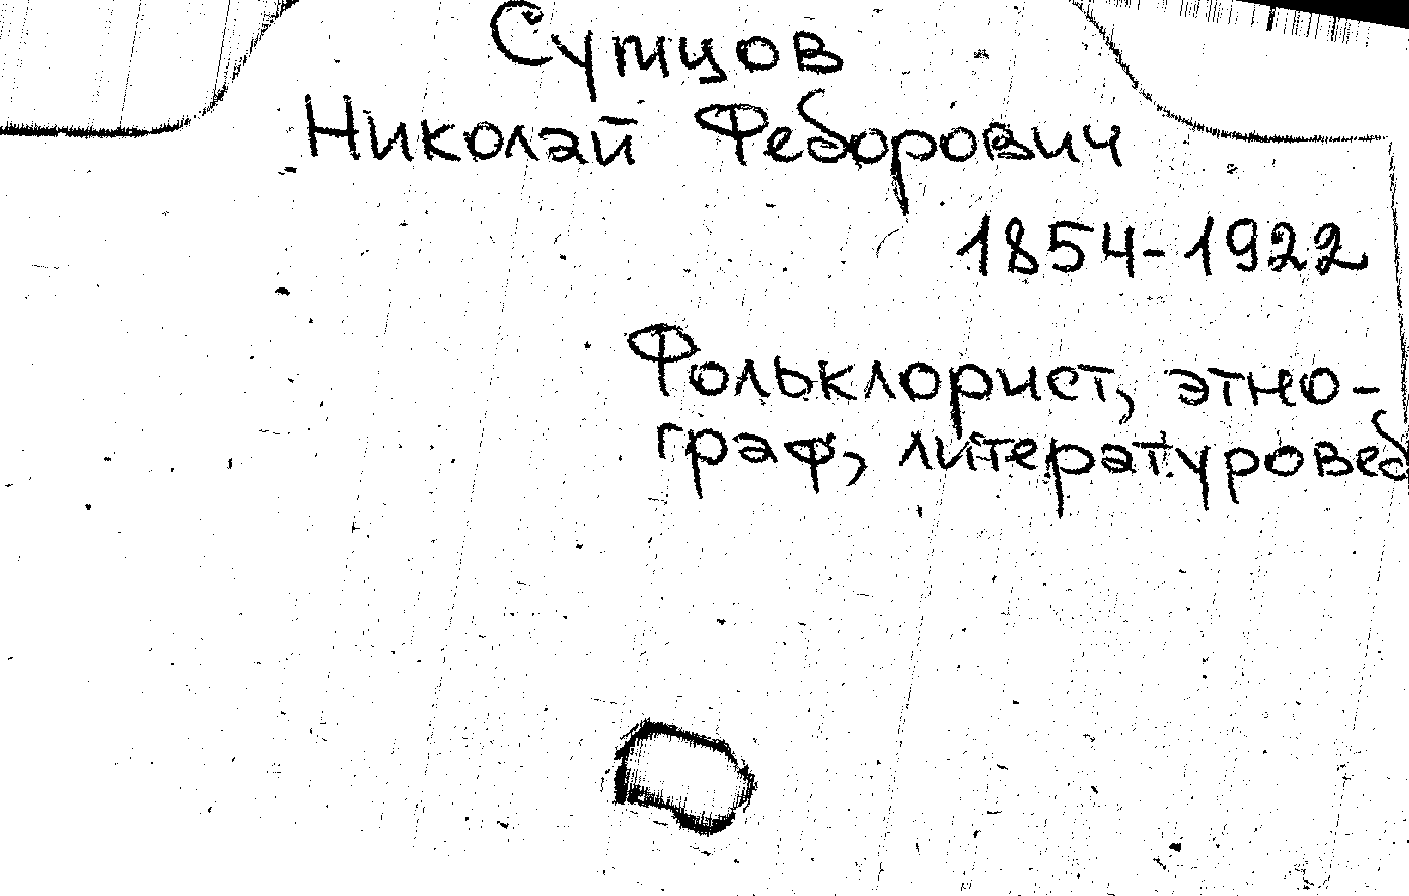 Сумцов
Николай Федорович
1854-1922
Фольклорист, этно-
граф, литературовед